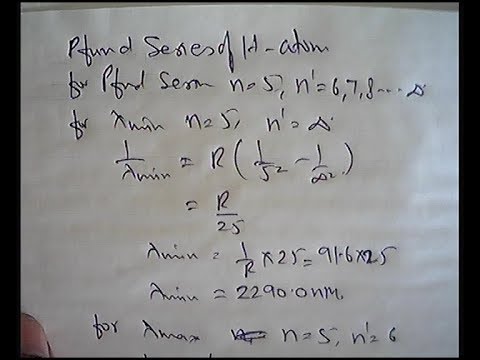 Pfund Series of H-atom
for Pfnd Serm n=5, n'=6,7,8----∞
for λmin n=5, n'=∞
1/λmin = R(1/5² - 1/∞²)
= R/25
λmin = 1/R × 25 = 91.6×25
λmin = 2290.0 nm.
for λmax n=5, n'=6